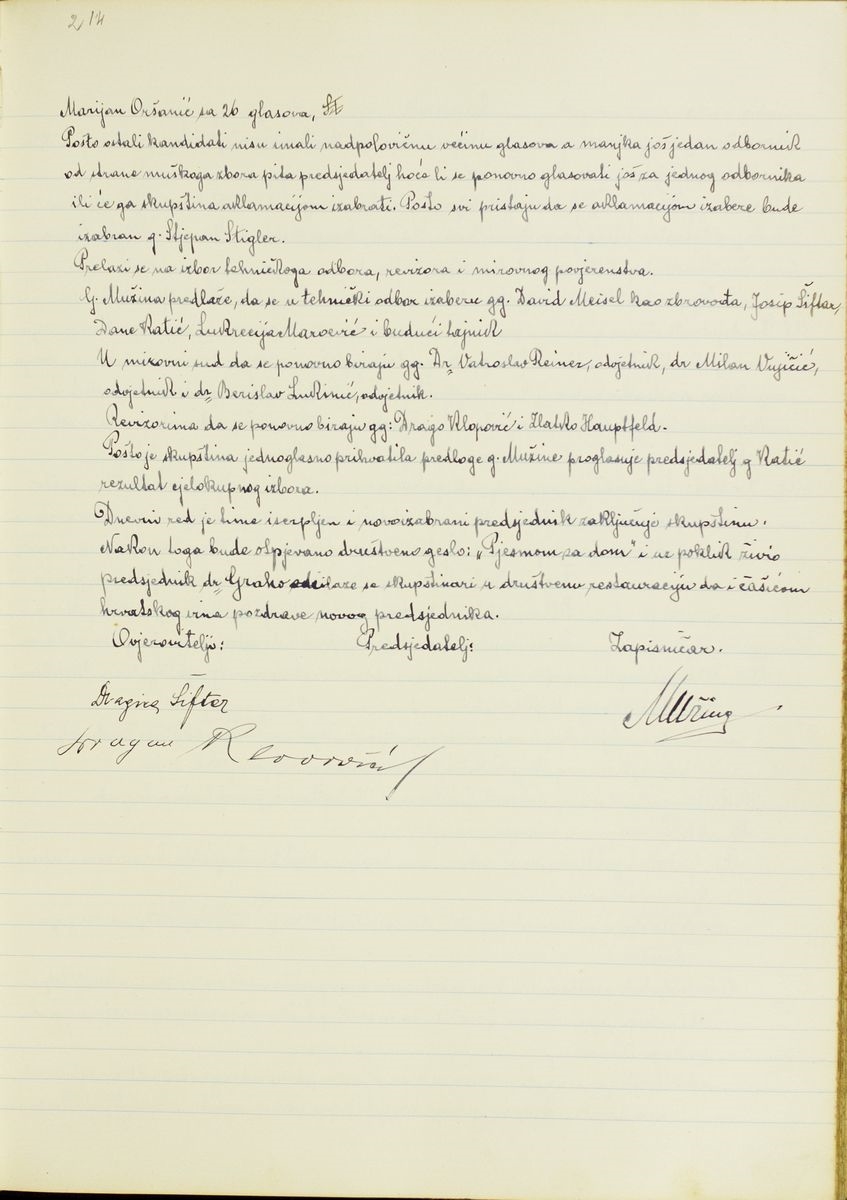 214
Marijan Oršanić sa 26 glasova,
Pošto ostali kandidati nisu imali nadpolovičnu većinu glasova a manjka još jedan odbornik
od strane muškoga zbora pita predsjedatelj hoće li se ponovno glasovati još za jednog odbornika
ili će ga skupština aklamacijom izabrati. Pošto svi pristaju da se aklamacijom izabere bude
izabran g. Stjepan Štigler.
Prelazi se na izbor tehničkoga odbora, revizora i mirovnog povjerenstva.
G. Mužina predlaže, da se u tehnički odbor izaberu gg. David Meisel kao zbrovođa, Josip Šiftar,
Dane Katić, Lukrecija Maroević i budući tajnik
U mirovni sud da se ponovno biraju gg. Dr. Vatroslav Reiner, odvjetnik, dr Milan Vujičić,
odvjetnik i dr. Berislav Lukinić, odvjetnik.
Revizorima da se ponovno biraju gg: Drago Klopović i Zlatko Hauptfeld.
Pošto je skupština jednoglasno prihvatila predloge g. Mužine proglasuje predsjedatelj g Katić
rezultat cjelokupnog izbora.
Dnevni red je time iscrpljen i novoizabrani predsjednik zaključuje skupštinu.
Nakon toga bude otpjevano društveno geslo: „Pjesmom za dom" i uz poklik živio
predsjednik dr. Graho odilaze se skupštinari u društvenu restauraciju da i čašicom
hrvatskog vina pozdrave novog predsjednika.
Ovjerovitelji: Predsjedatelj: Zapisničar.
Dragica Šifter
Mužina
Dragan